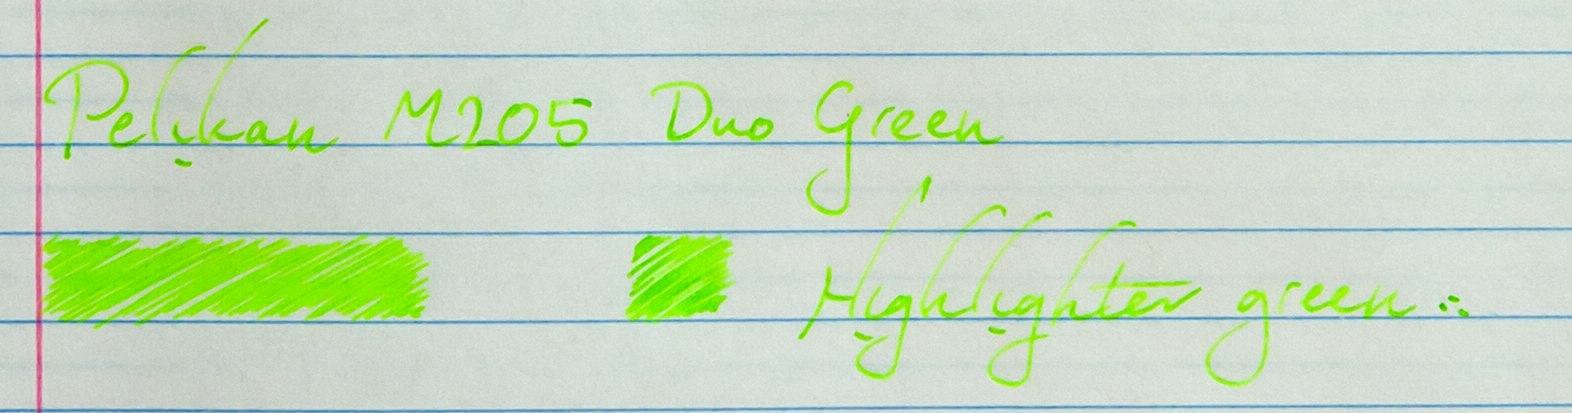 Pelikan M205 Duo Green
Highlighter green